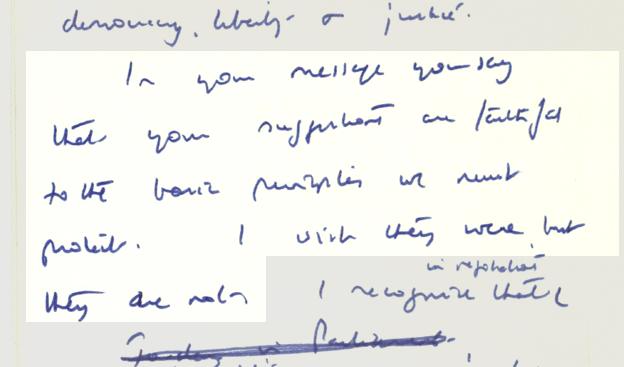 democracy, liberty & justice.
In your message you say
that your suggestions are faithful
to the basic principles we must
protect. I wish they were, but
they are not. I recognise that
in negotiations
in Parliament.